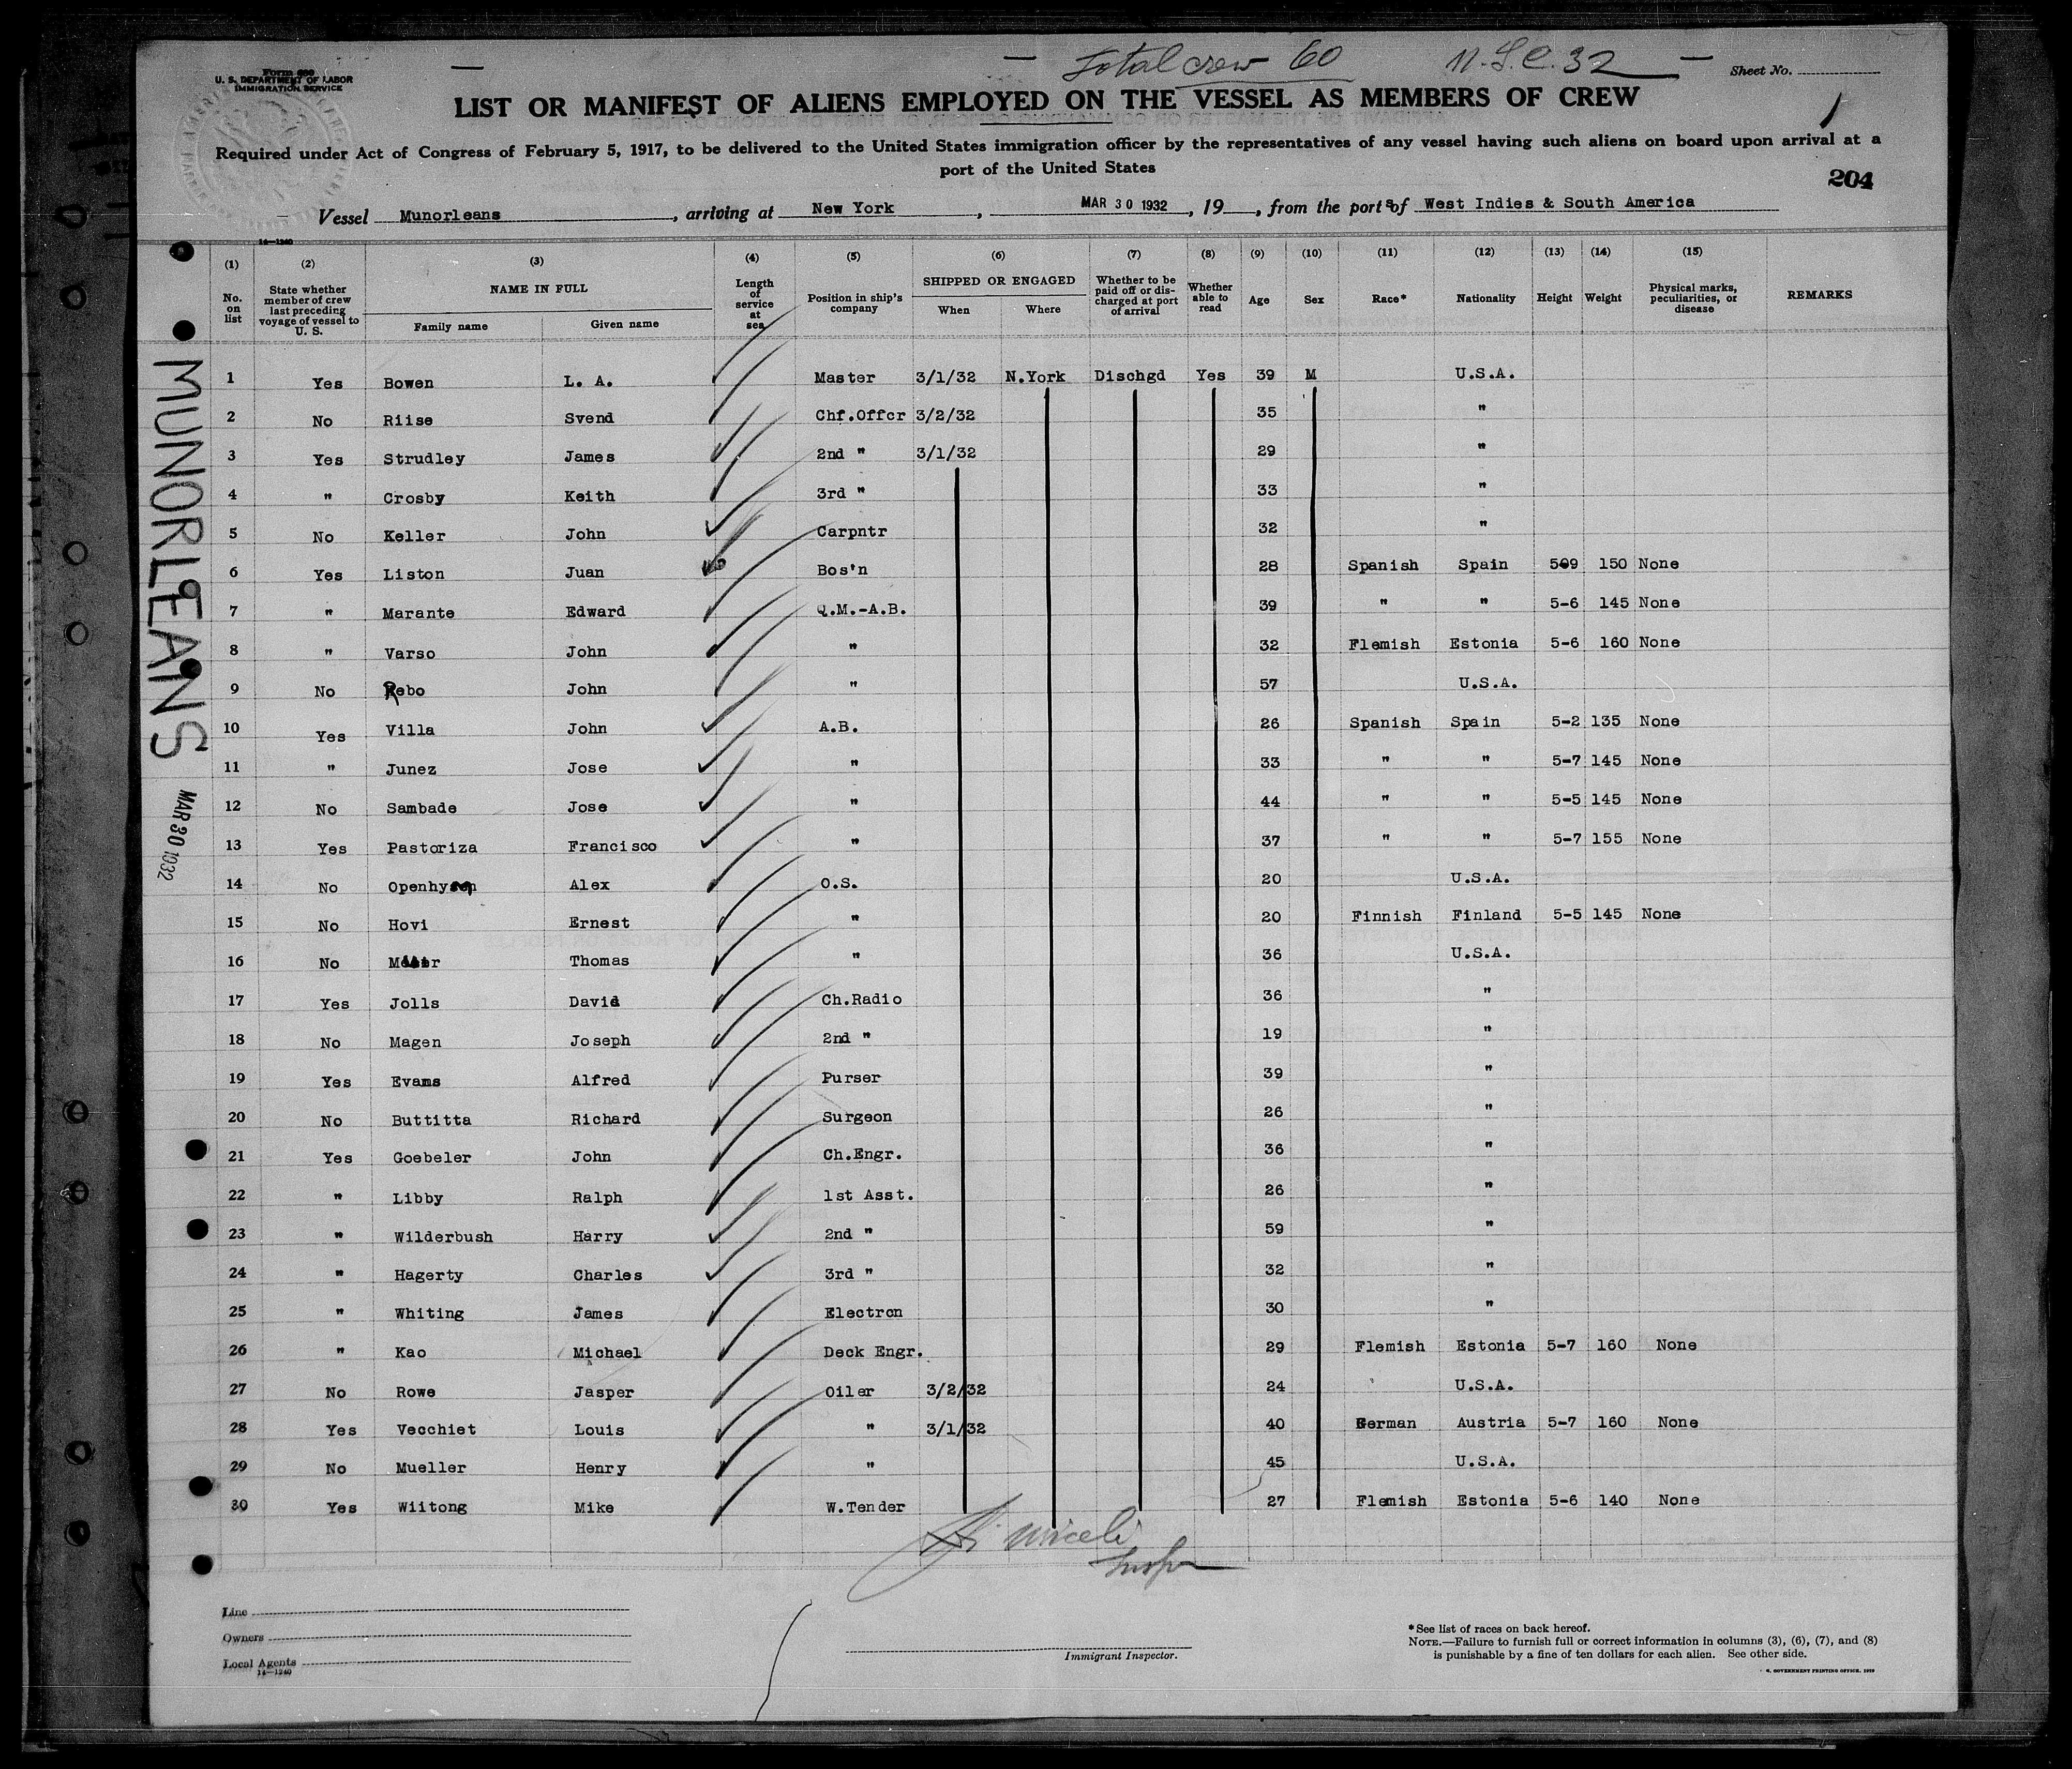 Total crew 60 U.S.C. 32
Form 689
U. S. DEPARTMENT OF LABOR
IMMIGRATION SERVICE
Sheet No.
1
LIST OR MANIFEST OF ALIENS EMPLOYED ON THE VESSEL AS MEMBERS OF CREW
Required under Act of Congress of February 5, 1917, to be delivered to the United States immigration officer by the representatives of any vessel having such aliens on board upon arrival at a
port of the United States
204
Vessel Munorleans, arriving at New York, MAR 30 1932, 19, from the ports of West Indies & South America
14—1240
(1) (2) (3) (4) (5) (6) (7) (8) (9) (10) (11) (12) (13) (14) (15)
No. on list State whether member of crew last preceding voyage of vessel to U. S. NAME IN FULL Family name Given name Length of service at sea Position in ship's company SHIPPED OR ENGAGED When Where Whether to be paid off or discharged at port of arrival Whether able to read Age Sex Race* Nationality Height Weight Physical marks, peculiarities, or disease REMARKS
1 Yes Bowen L. A. Master 3/1/32 N.York Dischgd Yes 39 M U.S.A.
2 No Riise Svend Chf.Offcr 3/2/32 35 "
3 Yes Strudley James 2nd " 3/1/32 29 "
4 " Crosby Keith 3rd " 33 "
5 No Keller John Carpntr 32 "
6 Yes Liston Juan Bos'n 28 Spanish Spain 509 150 None
7 " Marante Edward Q.M.-A.B. 39 " " 5-6 145 None
8 " Varso John " 32 Flemish Estonia 5-6 160 None
9 No Rebo John " 57 U.S.A.
10 Yes Villa John A.B. 26 Spanish Spain 5-2 135 None
11 " Junez Jose " 33 " " 5-7 145 None
12 No Sambade Jose " 44 " " 5-5 145 None
13 Yes Pastoriza Francisco " 37 " " 5-7 155 None
14 No Alex O.S. 20 U.S.A.
15 No Hovi Ernest " 20 Finnish Finland 5-5 145 None
16 No Thomas " 36 U.S.A.
17 Yes Jolls David Ch.Radio 36 "
18 No Magen Joseph 2nd " 19 "
19 Yes Evans Alfred Purser 39 "
20 No Buttitta Richard Surgeon 26 "
21 Yes Goebeler John Ch.Engr. 36 "
22 " Libby Ralph 1st Asst. 26 "
23 " Wilderbush Harry 2nd " 59 "
24 " Hagerty Charles 3rd " 32 "
25 " Whiting James Electrcn 30 "
26 " Kao Michael Deck Engr. 29 Flemish Estonia 5-7 160 None
27 No Rowe Jasper Oiler 3/2/32 24 U.S.A.
28 Yes Vecchiet Louis " 3/1/32 40 German Austria 5-7 160 None
29 No Mueller Henry " 45 U.S.A.
30 Yes Wiitong Mike W.Tender 27 Flemish Estonia 5-6 140 None
MUNORLEANS
MAR 30 1932
Miceli
Insp
Line
Owners
Local Agents
14—1240
Immigrant Inspector.
*See list of races on back hereof.
NOTE.—Failure to furnish full or correct information in columns (3), (6), (7), and (8)
is punishable by a fine of ten dollars for each alien. See other side.
GOVERNMENT PRINTING OFFICE